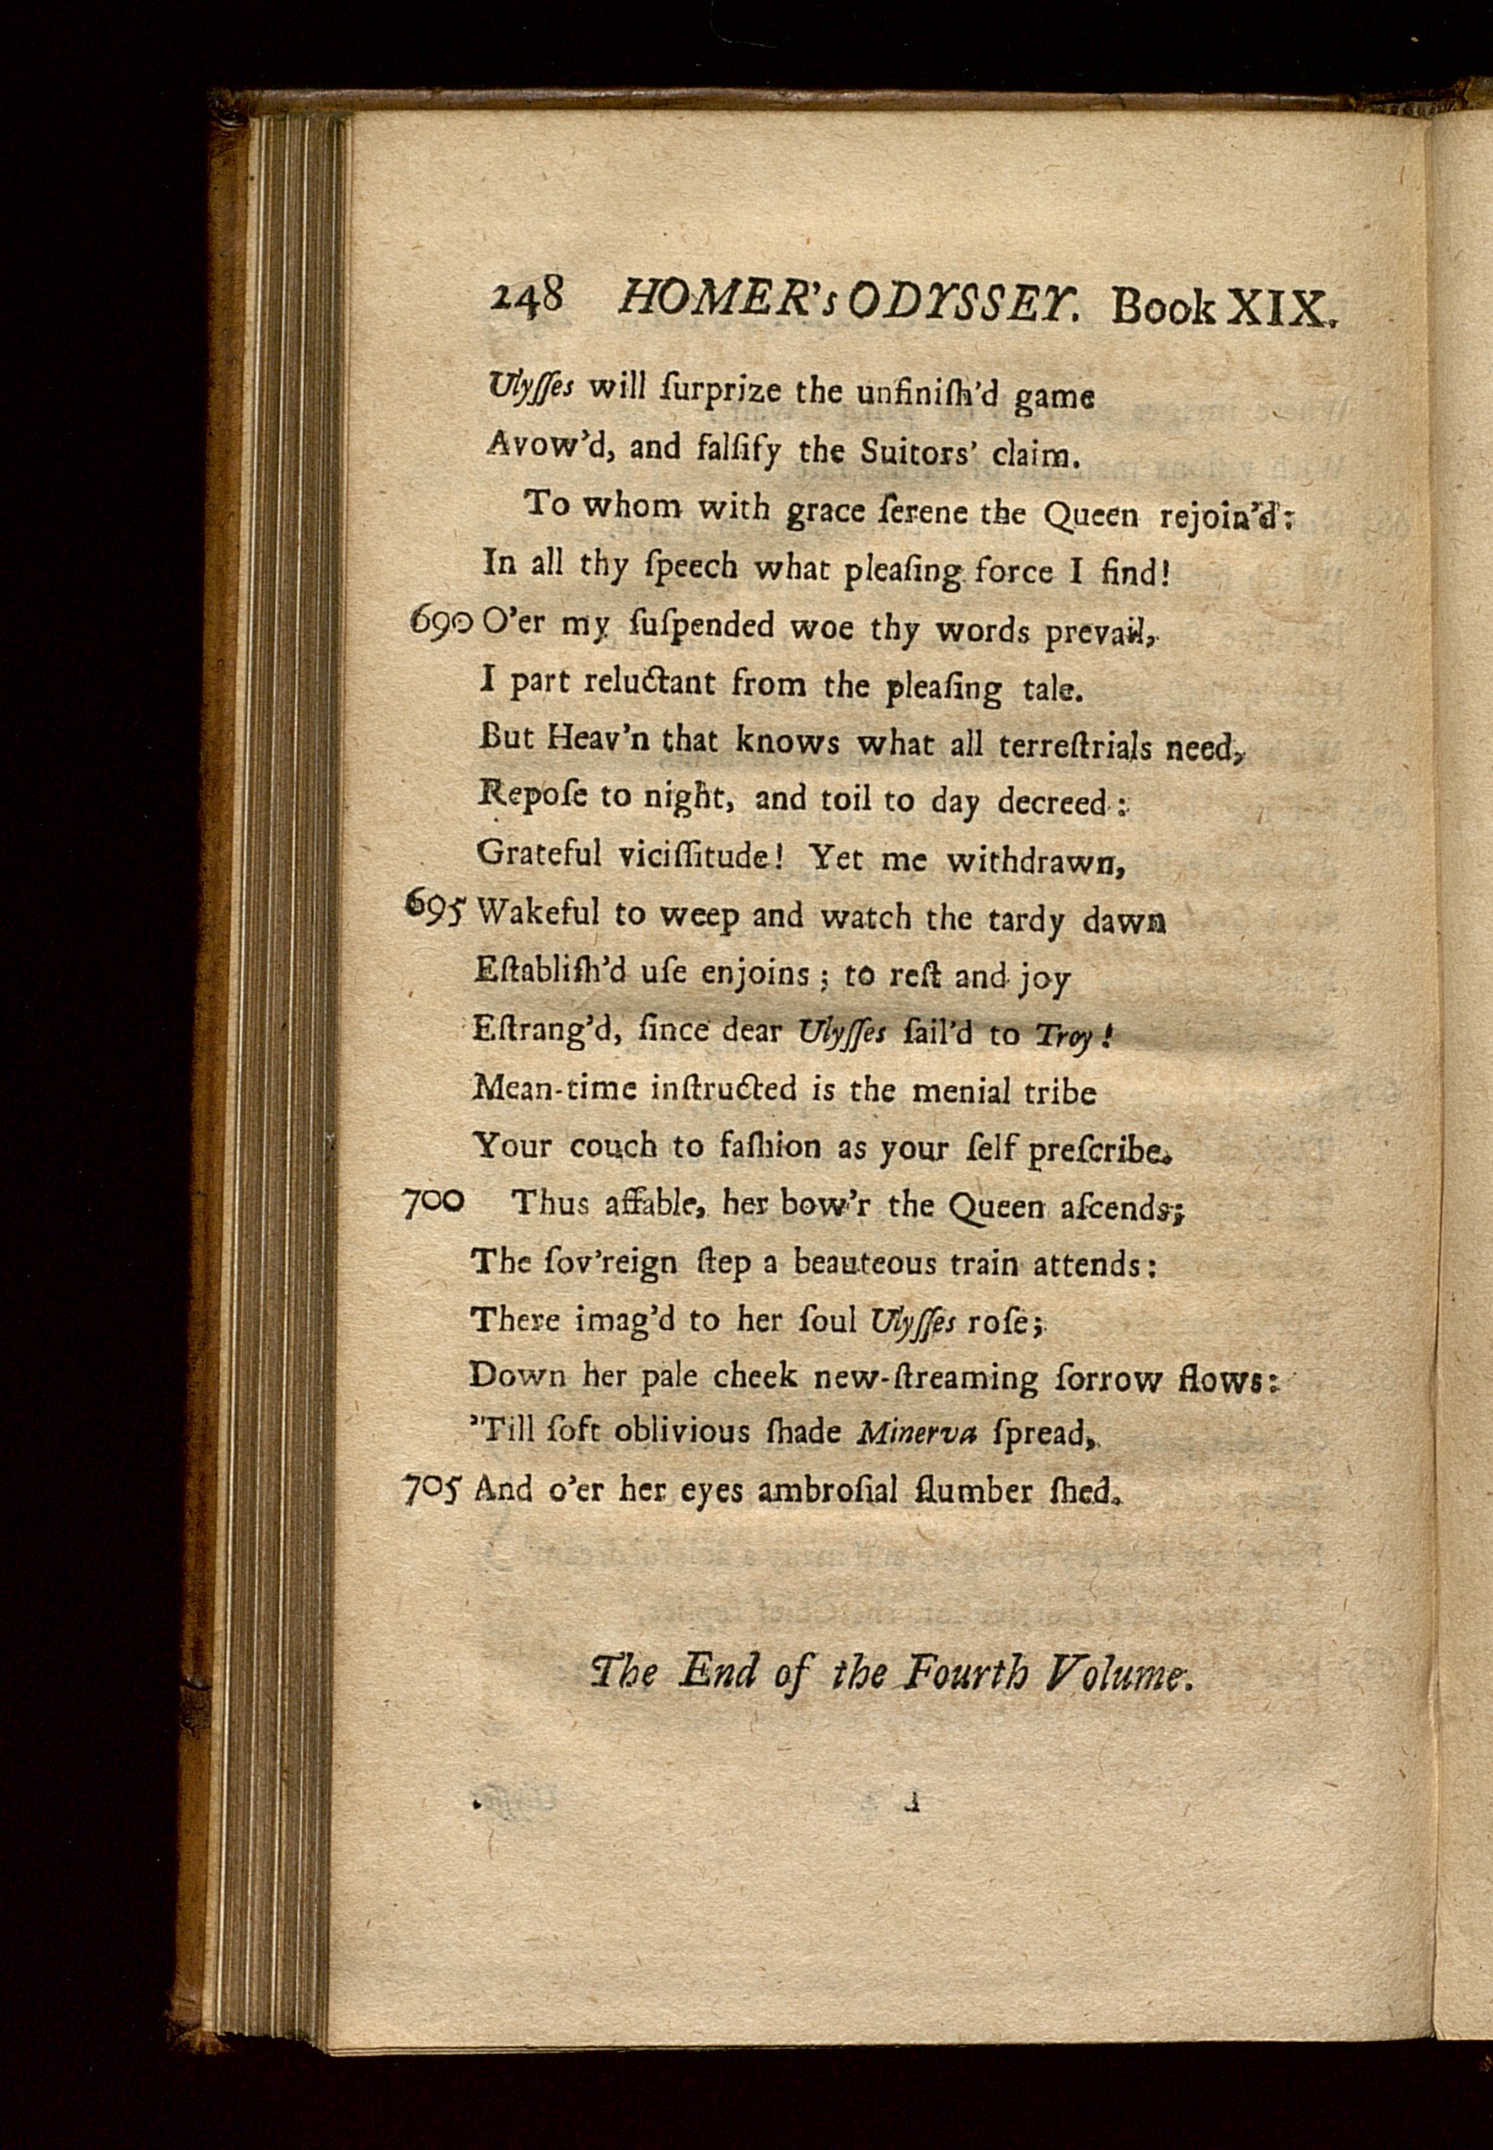 248 HOMER's ODYSSEY. Book XIX.
Ulyſſes will ſurprize the unfiniſh'd game
Avow'd, and falſify the Suitors' claim.
To whom with grace ſerene the Queen rejoin'd:
In all thy ſpeech what pleaſing force I find!
690 O'er my ſuſpended woe thy words prevail,
I part reluctant from the pleaſing tale.
But Heav'n that knows what all terreſtrials need,
Repoſe to night, and toil to day decreed:
Grateful viciſſitude! Yet me withdrawn,
695 Wakeful to weep and watch the tardy dawn
Eſtabliſh'd uſe enjoins; to reſt and joy
Eſtrang'd, ſince dear Ulyſſes ſail'd to Troy!
Mean-time inſtructed is the menial tribe
Your couch to faſhion as your ſelf preſcribe.
700 Thus affable, her bow'r the Queen aſcends;
The ſov'reign ſtep a beauteous train attends:
There imag'd to her ſoul Ulyſſes roſe;
Down her pale cheek new-ſtreaming ſorrow flows:
'Till ſoft oblivious ſhade Minerva ſpread,
705 And o'er her eyes ambroſial ſlumber ſhed.
The End of the Fourth Volume.